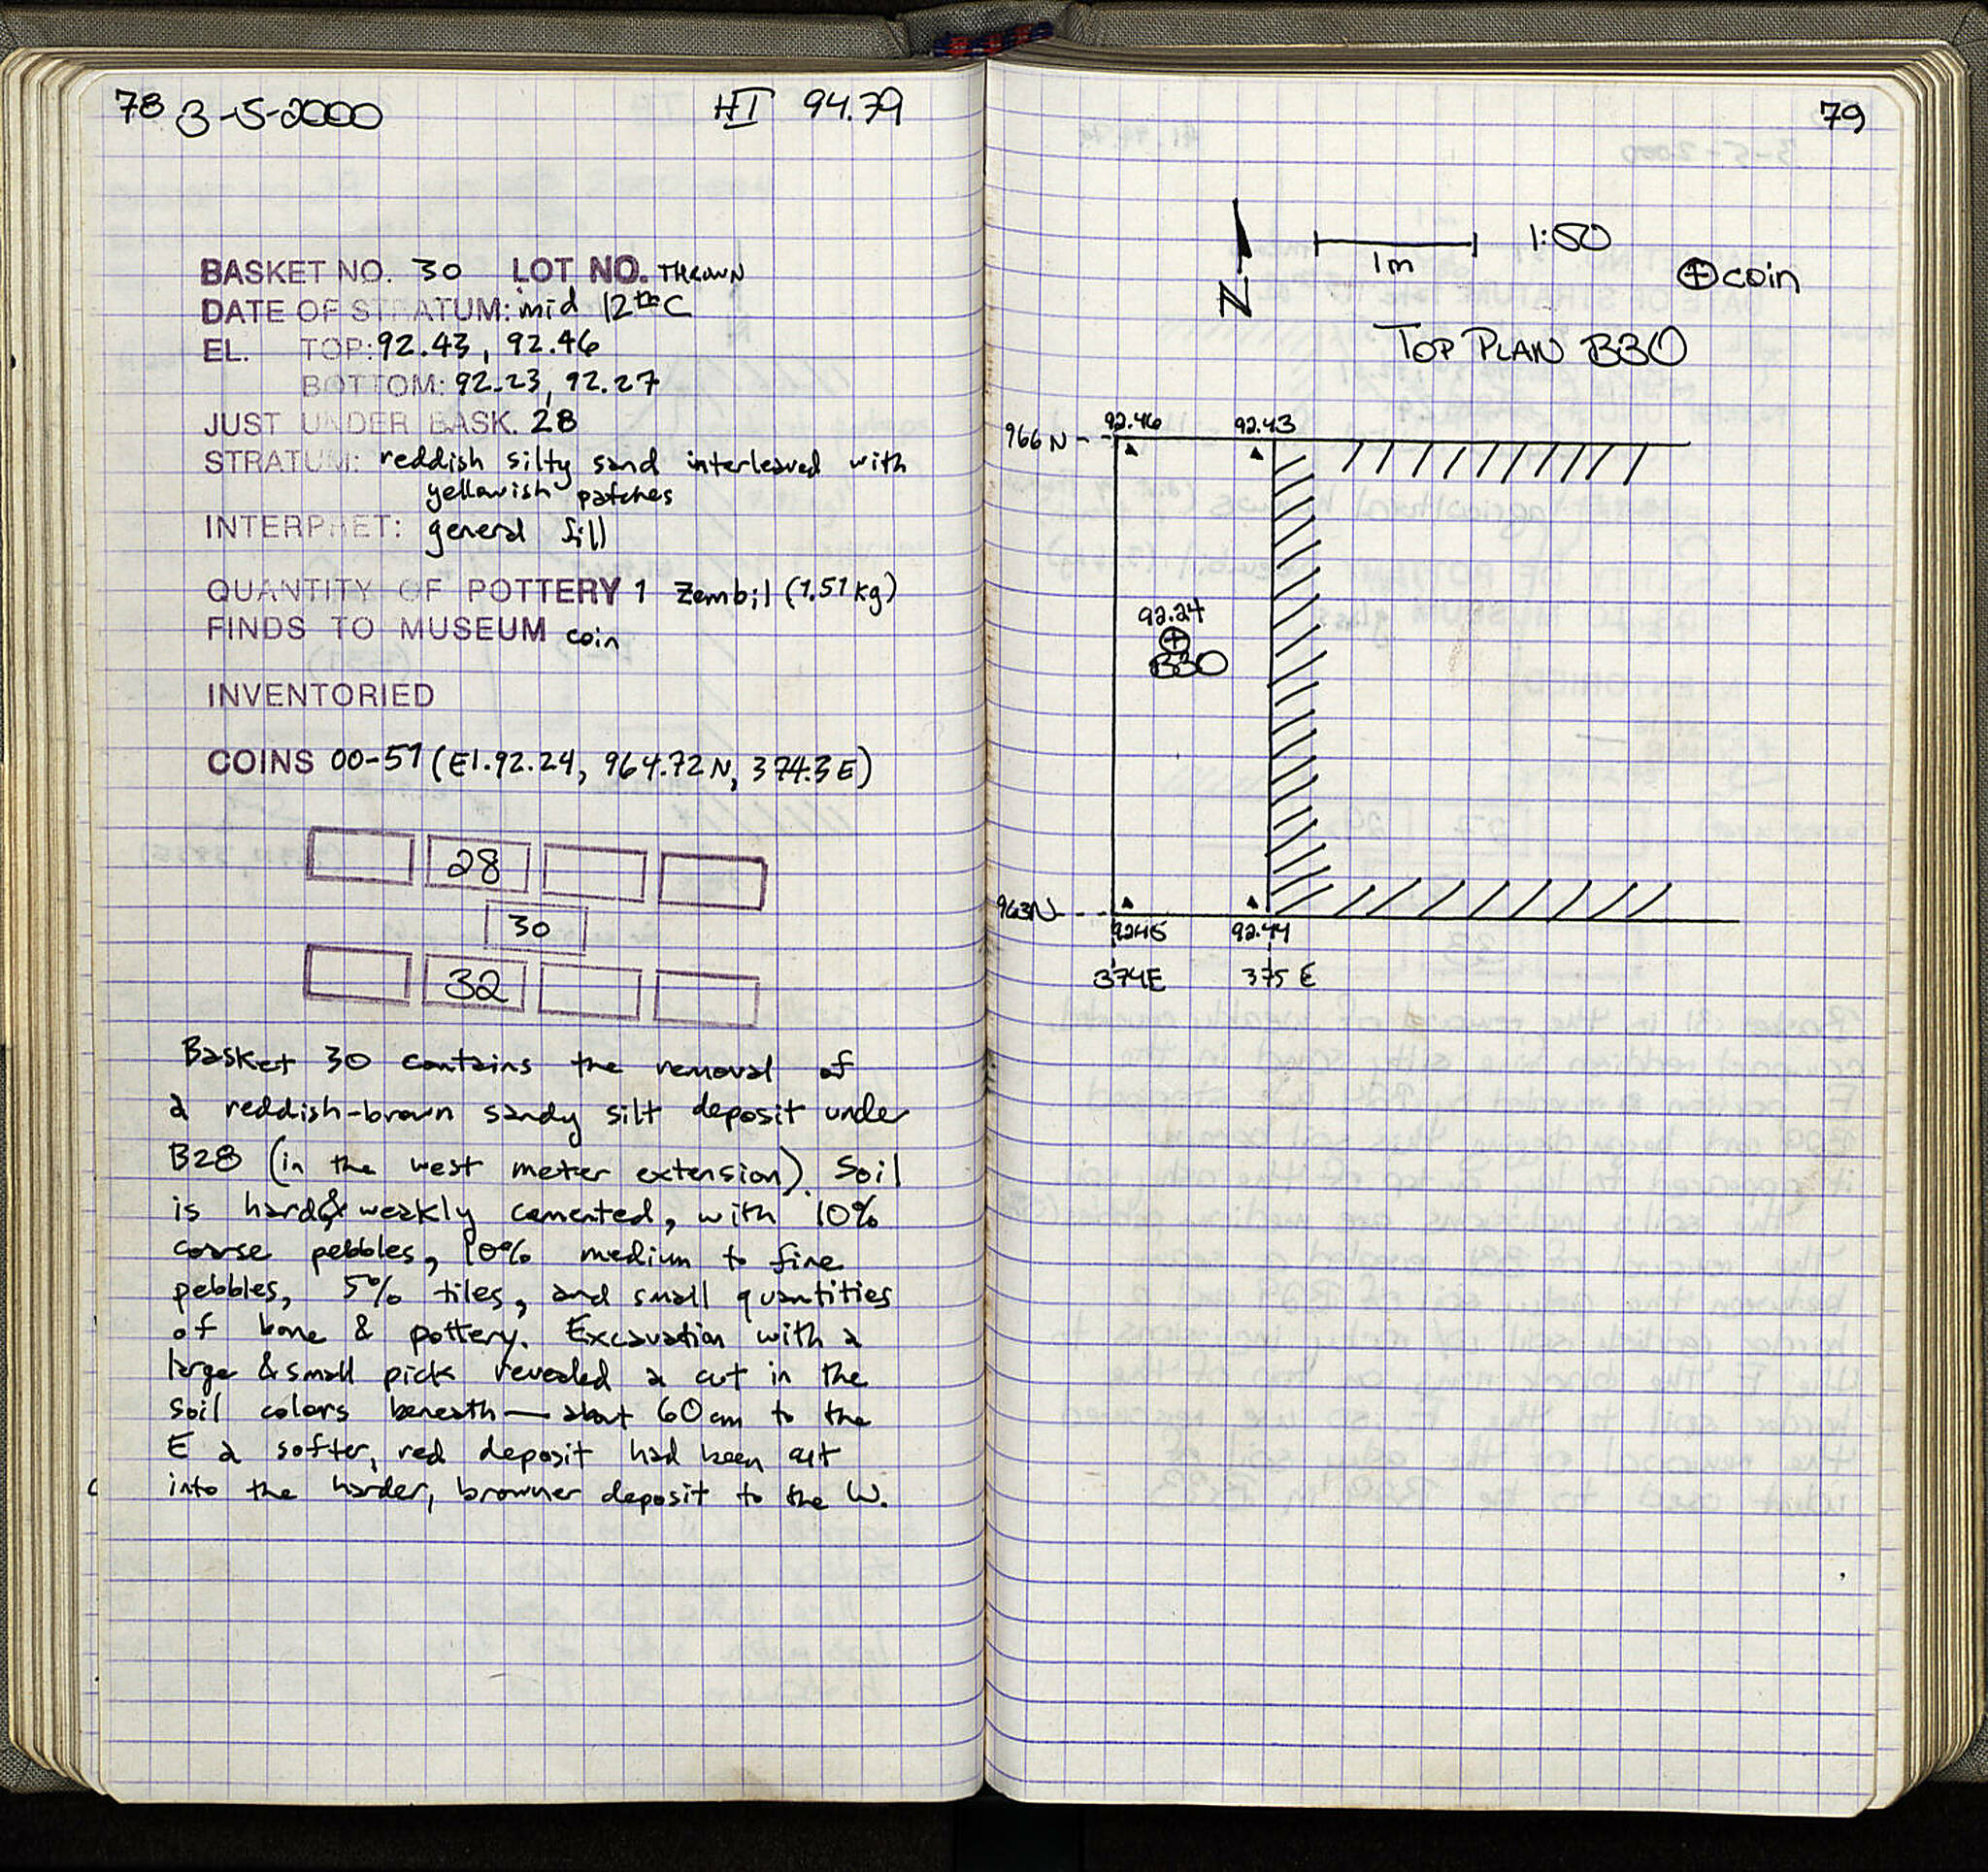 78 3-5-2000 HI 94.79
BASKET NO. 30 LOT NO. THROWN
DATE OF STRATUM: mid 12th C
EL. TOP: 92.43, 92.46
BOTTOM: 92.23, 92.27
JUST UNDER BASK. 28
STRATUM: reddish silty sand interleaved with
yellowish patches
INTERPRET: general fill
QUANTITY OF POTTERY 1 Zembil (1.51 kg)
FINDS TO MUSEUM coin
INVENTORIED
COINS 00-51 (El. 92.24, 964.72 N, 374.3 E)
28
30
32
Basket 30 contains the removal of
a reddish-brown sandy silt deposit under
B28 (in the west meter extension). Soil
is hard & weakly cemented, with 10%
coarse pebbles, 10% medium to fine
pebbles, 5% tiles, and small quantities
of bone & pottery. Excavation with a
large & small pick revealed a cut in the
soil colors beneath — about 60 cm to the
E a softer, red deposit had been cut
into the harder, browner deposit to the W.
79
1:50
1m
⊕ coin
N
TOP PLAN B30
92.46 92.43
966 N
92.24
⊕
B30
963 N
92.45 92.44
374 E 375 E